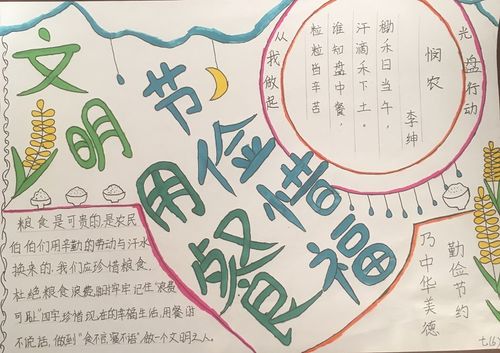 文明
用餐
节俭惜福
从我做起
光盘行动
悯农
李绅
锄禾日当午，
汗滴禾下土。
谁知盘中餐，
粒粒皆辛苦
粮食是可贵的是农民
伯伯们用辛勤的劳动与汗水
换来的,我们应珍惜粮食,
杜绝粮食浪费,时牢牢记住"浪费
可耻"四字珍惜现在的幸福生活,用餐时
不说话,做到"食不言,寝不语"做一个文明之人。
勤俭节约
乃中华美德